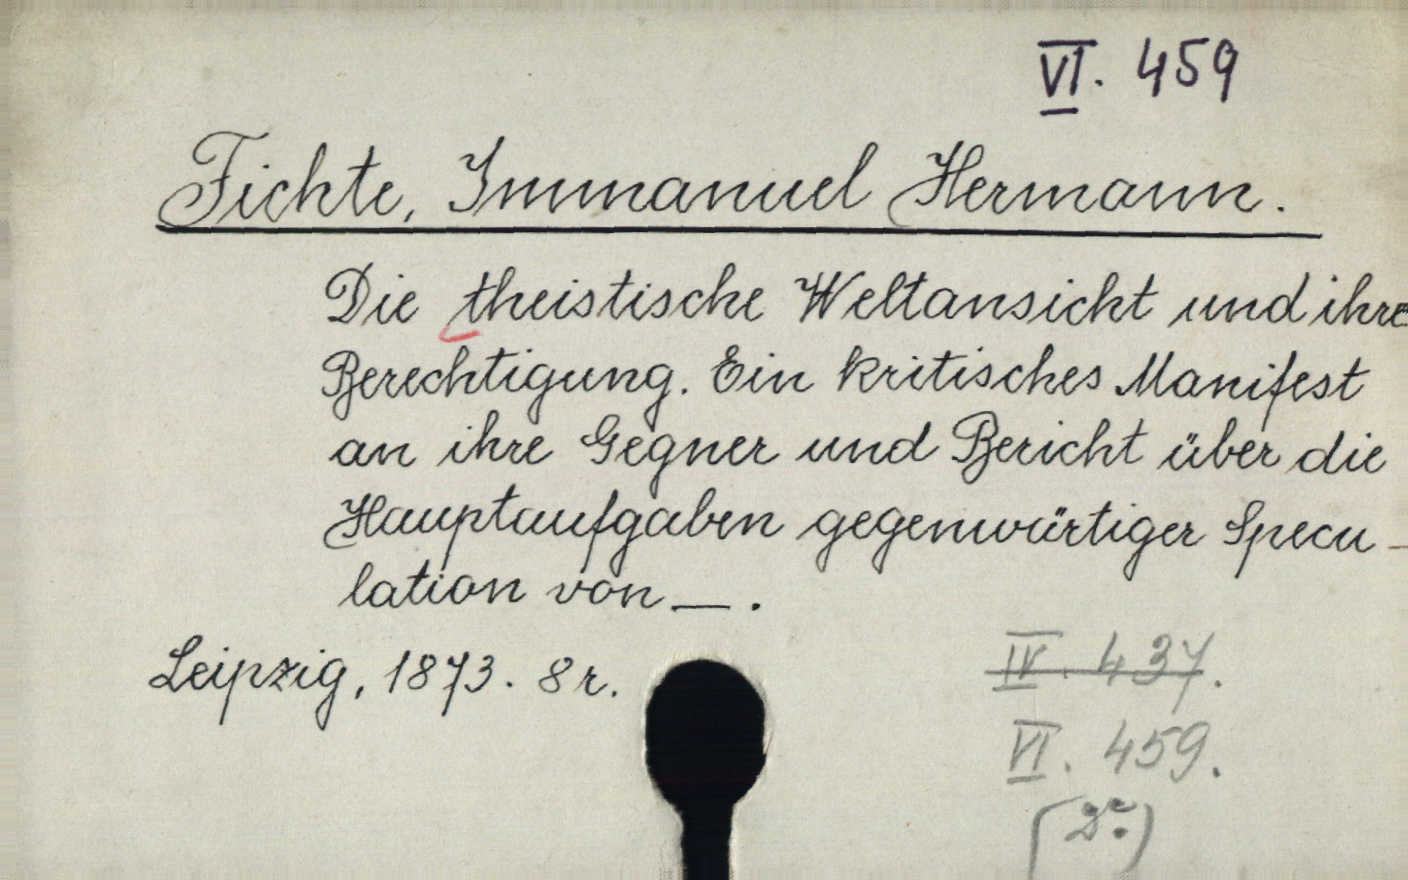 VI. 459
Fichte, Immanuel Hermann.
Die theistische Weltansicht und ihre
Berechtigung. Ein kritisches Manifest
an ihre Gegner und Bericht über die
Hauptaufgaben gegenwärtiger Specu-
lation von — .
Leipzig, 1873. 8r.
IV. 437.
VI. 459.